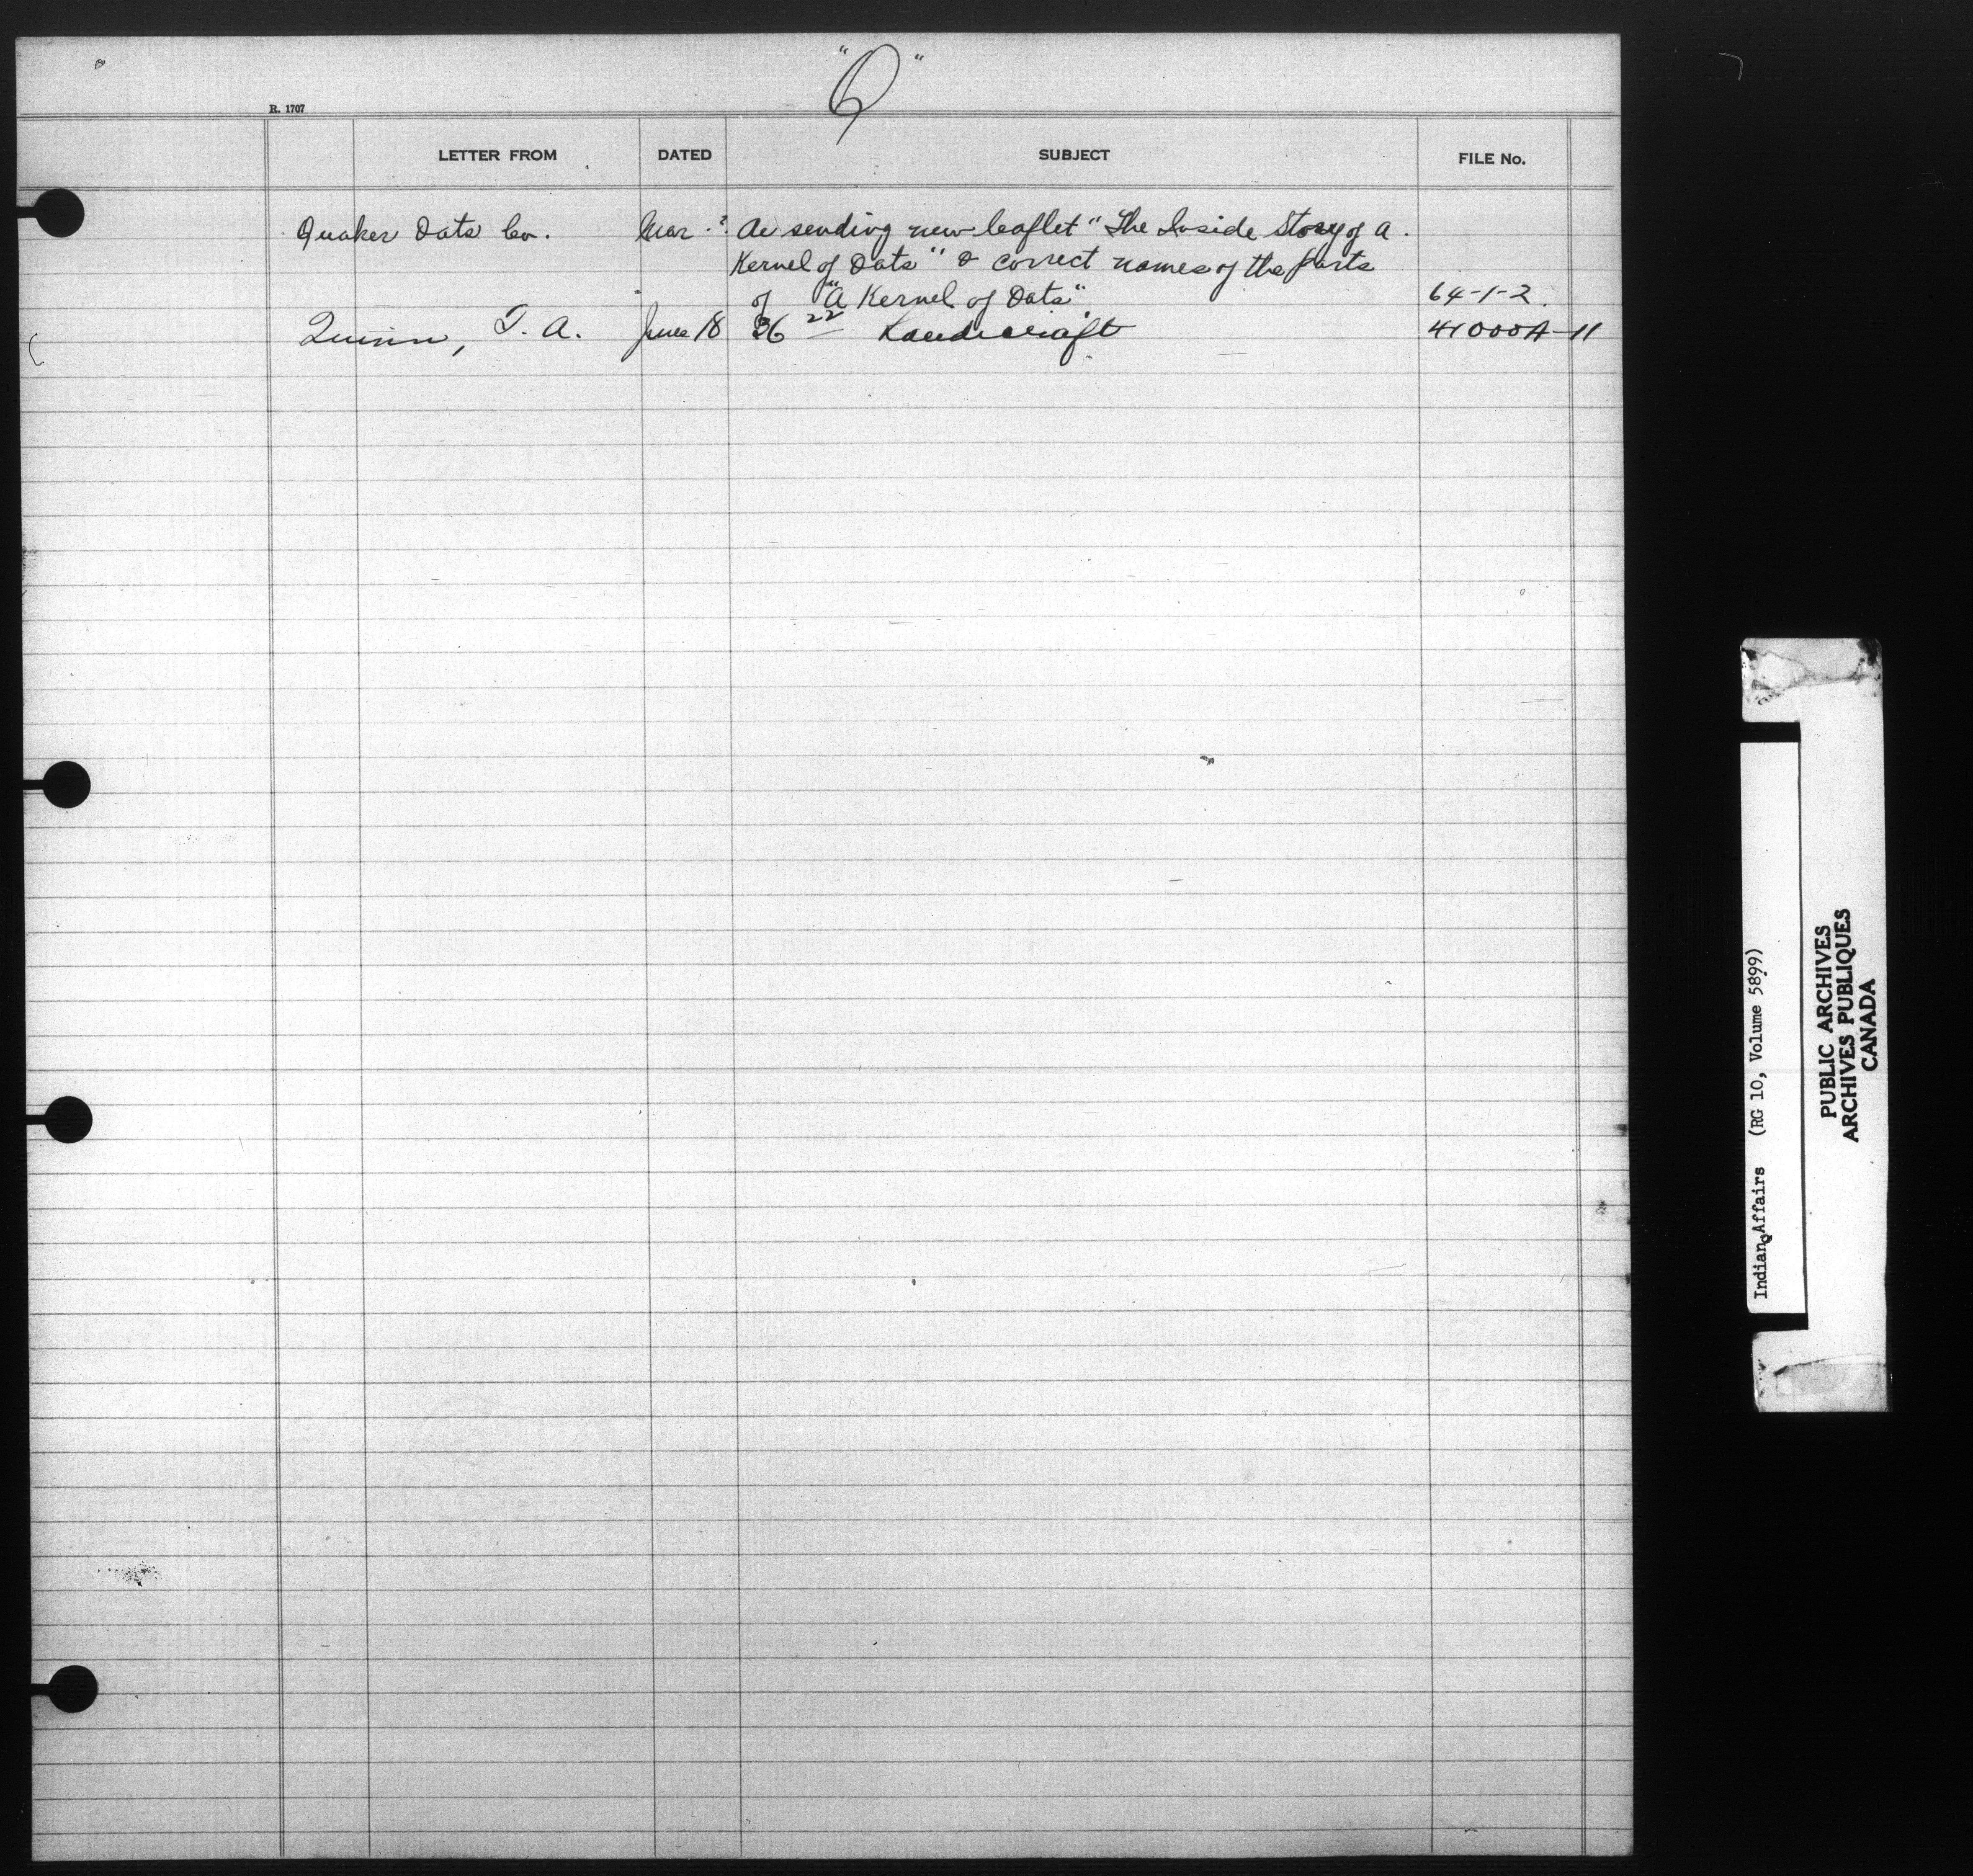 "Q"
R. 1707
LETTER FROM DATED SUBJECT FILE No.
Quaker Oats Co. Mar. ? Re sending new leaflet "The Inside Story of a
Kernel of Oats" & correct names of the parts
of "A Kernel of Oats". 64-1-2.
Quinn, T. A. June 18 36 22 Handicraft 41000A-11
Indian Affairs (RG 10, Volume 5899)
PUBLIC ARCHIVES
ARCHIVES PUBLIQUES
CANADA